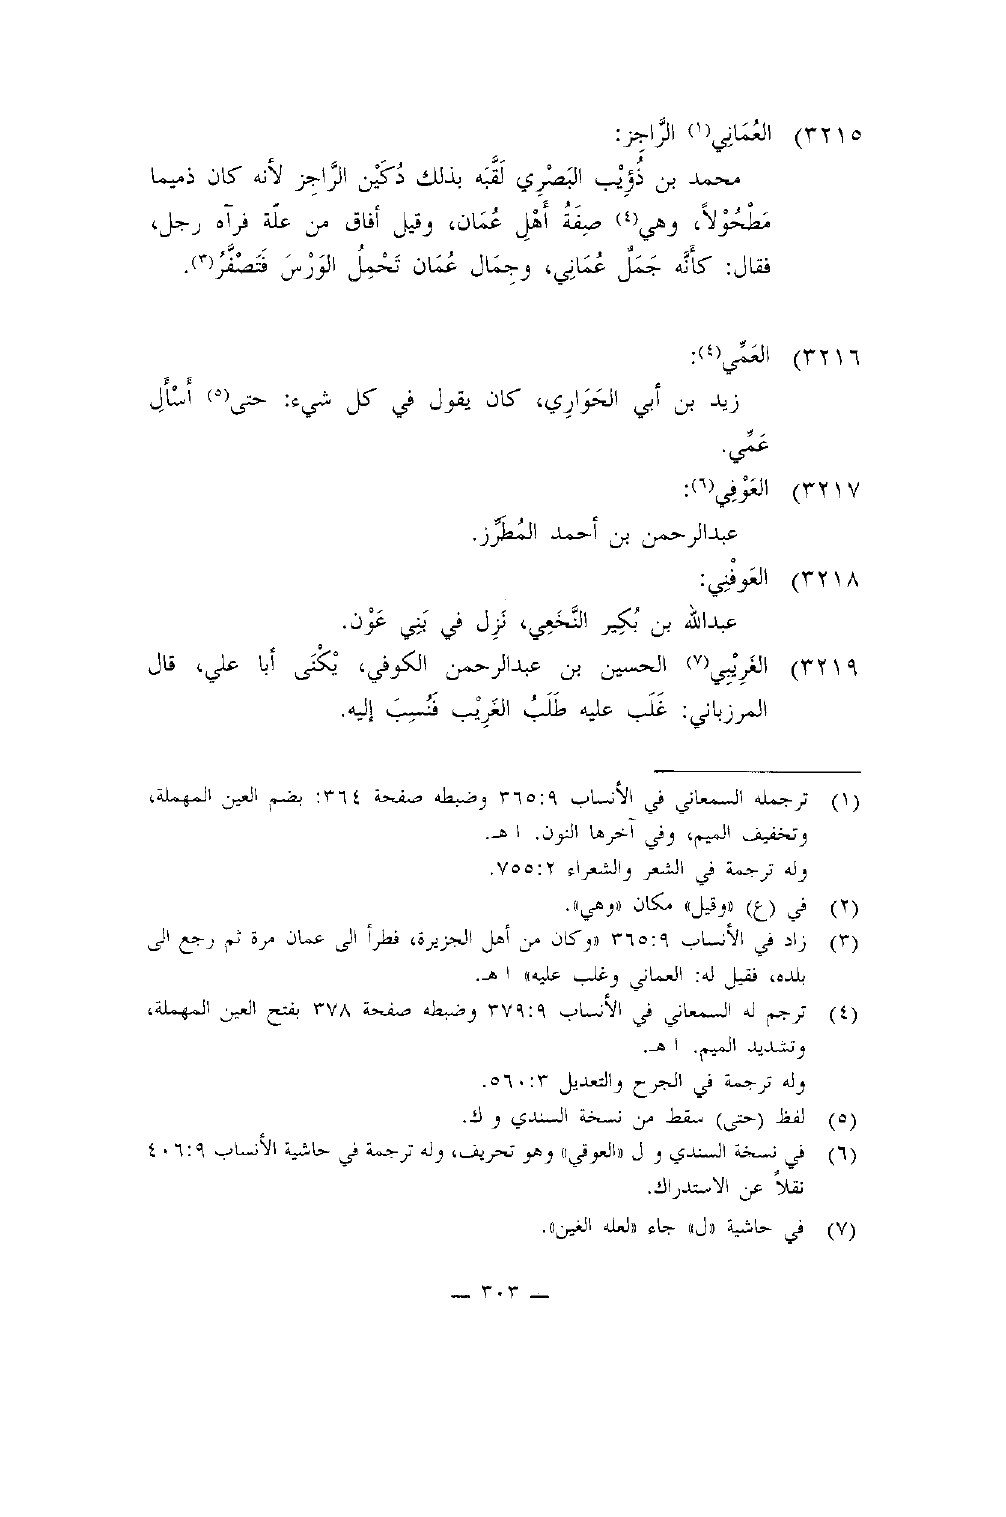 ٣٢١٥) العُمَانِي(١) الرَّاجِز:
محمد بن ذُؤَيْب البَصْرِي لَقَّبَه بذلك دُكَيْن الرَّاجِز لأنه كان ذميما
مَطْحُوْلاً، وهي(٤) صِفَةُ أَهْلِ عُمَان، وقيل أفاق من علّة فرآه رجل،
فقال: كأنَّه جَمَلٌ عُمَانِي، وجِمَال عُمَان تَحْمِلُ الوَرْسَ فَتَصْفَرُّ(٣).
٣٢١٦) العَمِّي(٤):
زيد بن أبي الحَوَارِي، كان يقول في كل شيء: حتى(٥) أَسْأَلِ
عَمِّي.
٣٢١٧) العَوْفِي(٦):
عبدالرحمن بن أحمد المُطَرِّز.
٣٢١٨) العَوفْنِي:
عبدالله بن بُكِير النَّخَعِي، نَزِل في بَنِي عَوْن.
٣٢١٩) الغَرِيْبِي(٧) الحسين بن عبدالرحمن الكوفي، يْكْنَى أبا علي، قال
المرزباني: غَلَب عليه طَلَبُ الغَرِيْب فَنُسِبَ إليه.
(١) ترجمله السمعاني في الأنساب ٣٦٥:٩ وضبطه صفحة ٣٦٤: بضم العين المهملة،
وتخفيف الميم، وفي آخرها النون. ا هـ.
وله ترجمة في الشعر والشعراء ٧٥٥:٢.
(٢) في (ع) «وقيل» مكان «وهي».
(٣) زاد في الأنساب ٣٦٥:٩ «وكان من أهل الجزيرة، فطرأ الى عمان مرة ثم رجع الى
بلده، فقيل له: العماني وغلب عليه» ا هـ.
(٤) ترجم له السمعاني في الأنساب ٣٧٩:٩ وضبطه صفحة ٣٧٨ بفتح العين المهملة،
وتشديد الميم. ا هـ.
وله ترجمة في الجرح والتعديل ٥٦٠:٣.
(٥) لفظ (حتى) سقط من نسخة السندي و ك.
(٦) في نسخة السندي و ل «العوقي» وهو تحريف، وله ترجمة في حاشية الأنساب ٤٠٦:٩
نقلاً عن الاستدراك.
(٧) في حاشية «ل» جاء «لعله الغين».
— ٣٠٣ —